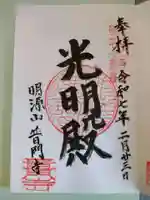 奉拝
令和七年二月廿三日
光明殿
明源山 普門寺